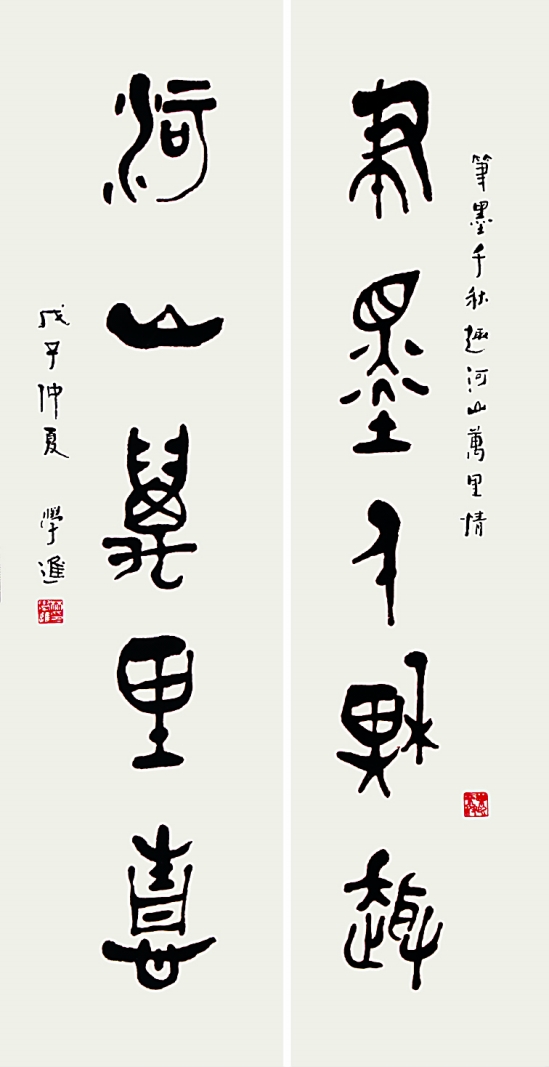 筆墨千秋趣河山萬里情
筆墨千秋趣
河山萬里情
戊子仲夏 學進